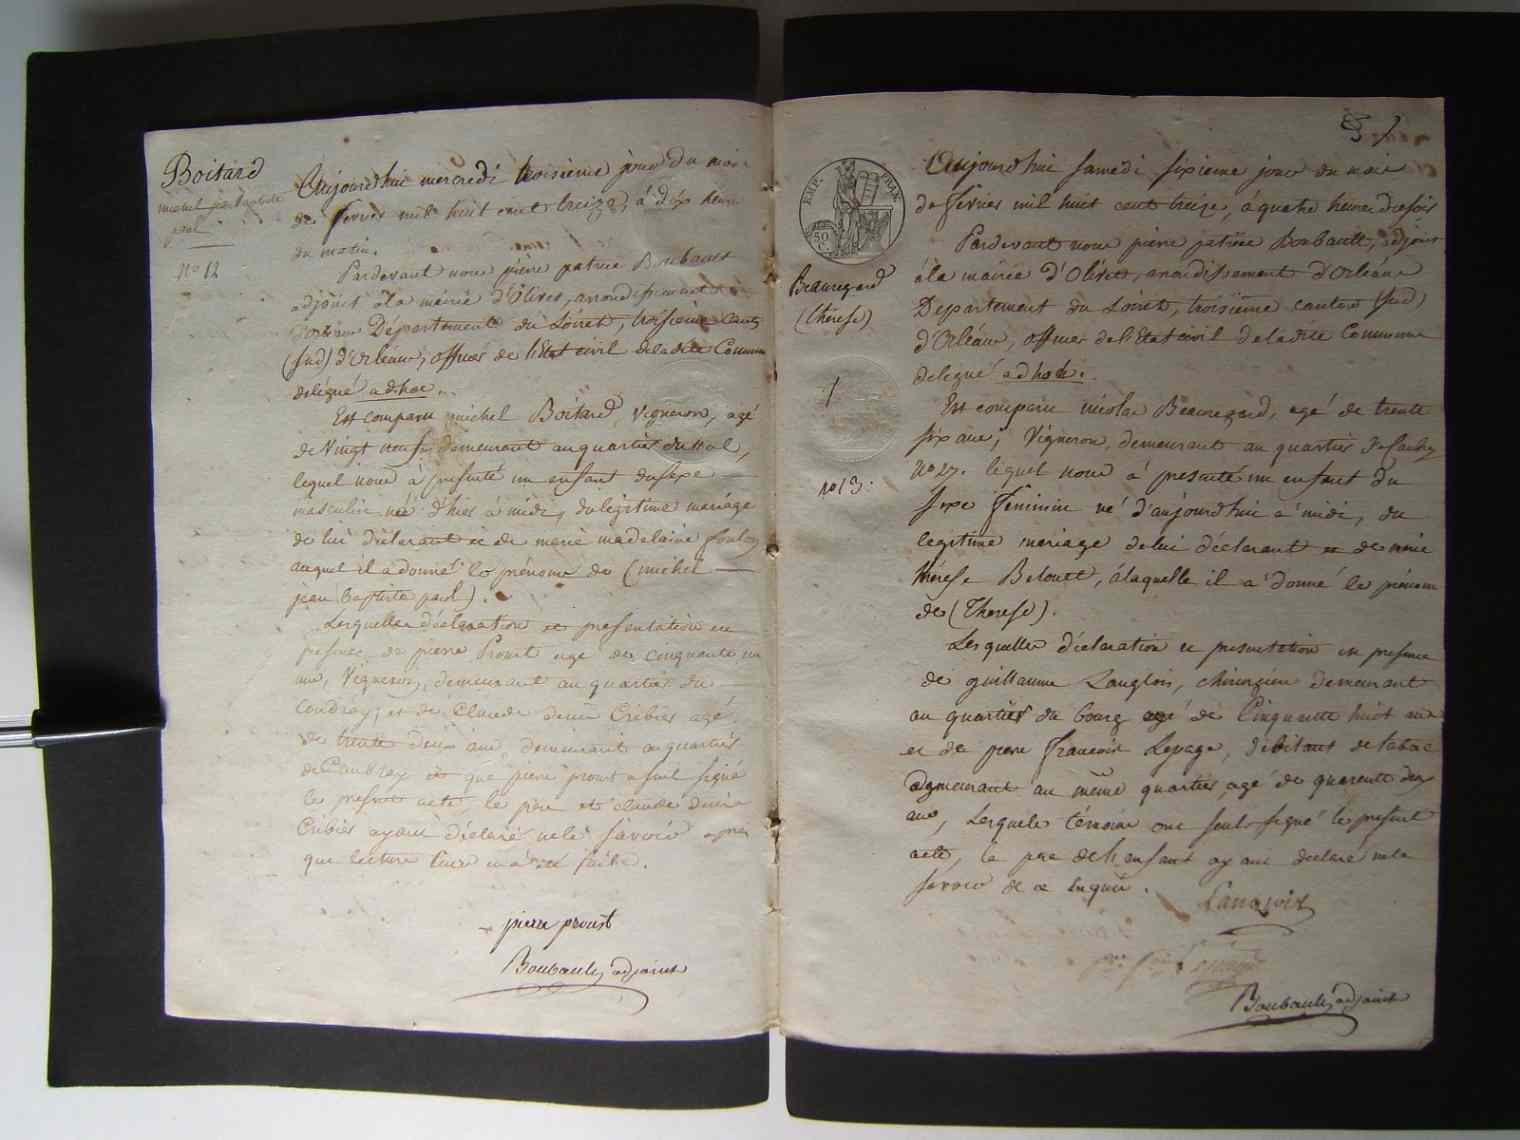 Boitard
michel jean Baptiste
paul
n° 12
Aujourdhui mercredi troisieme jour du mois
de fevrier mil huit cent treize, à dix heures
du matin.
Pardevant nous pierre patrice Boubault
adjoint à la mairie d'Olivet, arrondissement
d'orleans Département du Loiret, troisieme canton
(sud) d'Orléans, officier de l'Etat civil de la dite Commune
délégué ad hoc.
Est comparu michel Boitard, vigneron, agé
de vingt neuf demeurant au quartier du val,
lequel nous à presenté un enfant du sexe
masculin né d'hier à midi, du légitime mariage
de lui déclarant et de marie madelaine
auquel il a donné les prénoms de (michel
jean baptiste paul).
Lesquelles déclaration et presentation en
presence de pierre Proust agé de cinquante un
ans, Vigneron, demeurant au quartier du
Coudray, et de Claude denis Cribier agé
de trente deux ans, demeurant au quartier
de Caubray et que pierre proust a seul signé
le present acte le pere et claude denis
Cribier ayant déclaré ne le savoir apres
que lecture leur en a été faite.
pierre proust
Boubault, adjoint
5
EMP. FRAN.
50 C.
Beauregard
(thérese)
n° 13.
Aujourdhui samedi sixieme jour du mois
de fevrier mil huit cent treize, à quatre heures du soir
Pardevant nous pierre patrice Boubault, adjoint
à la mairie d'Olivet, arrondissement d'Orléans
Departement du Loiret, troisieme canton (sud)
d'Orléans, officier de l'Etat civil de la dite Commune
delegué ad hoc.
Est comparu nicolas Beauregard, agé de trente
six ans, Vigneron, demeurant au quartier
n° 27. lequel nous à presenté un enfant du
sexe feminin né d'aujourdhui à midi, du
legitime mariage de lui déclarant et de marie
thérese Beloutt, à laquelle il a donné le prénom
de (Therese).
Lesquelles déclaration et presentation en presence
de guillaume Langlois, chirurgien demeurant
au quartier du bourg agé de Cinquante huit ans
et de pierre francois Lepage, débitant de tabac
demeurant au même quartier agé de quarente deux
ans, Lesquels témoins ont seuls signé le present
acte, le pere de l'enfant ayant declaré ne le
savoir de ce enquis.
Langlois
Lepage
Boubault, adjoint